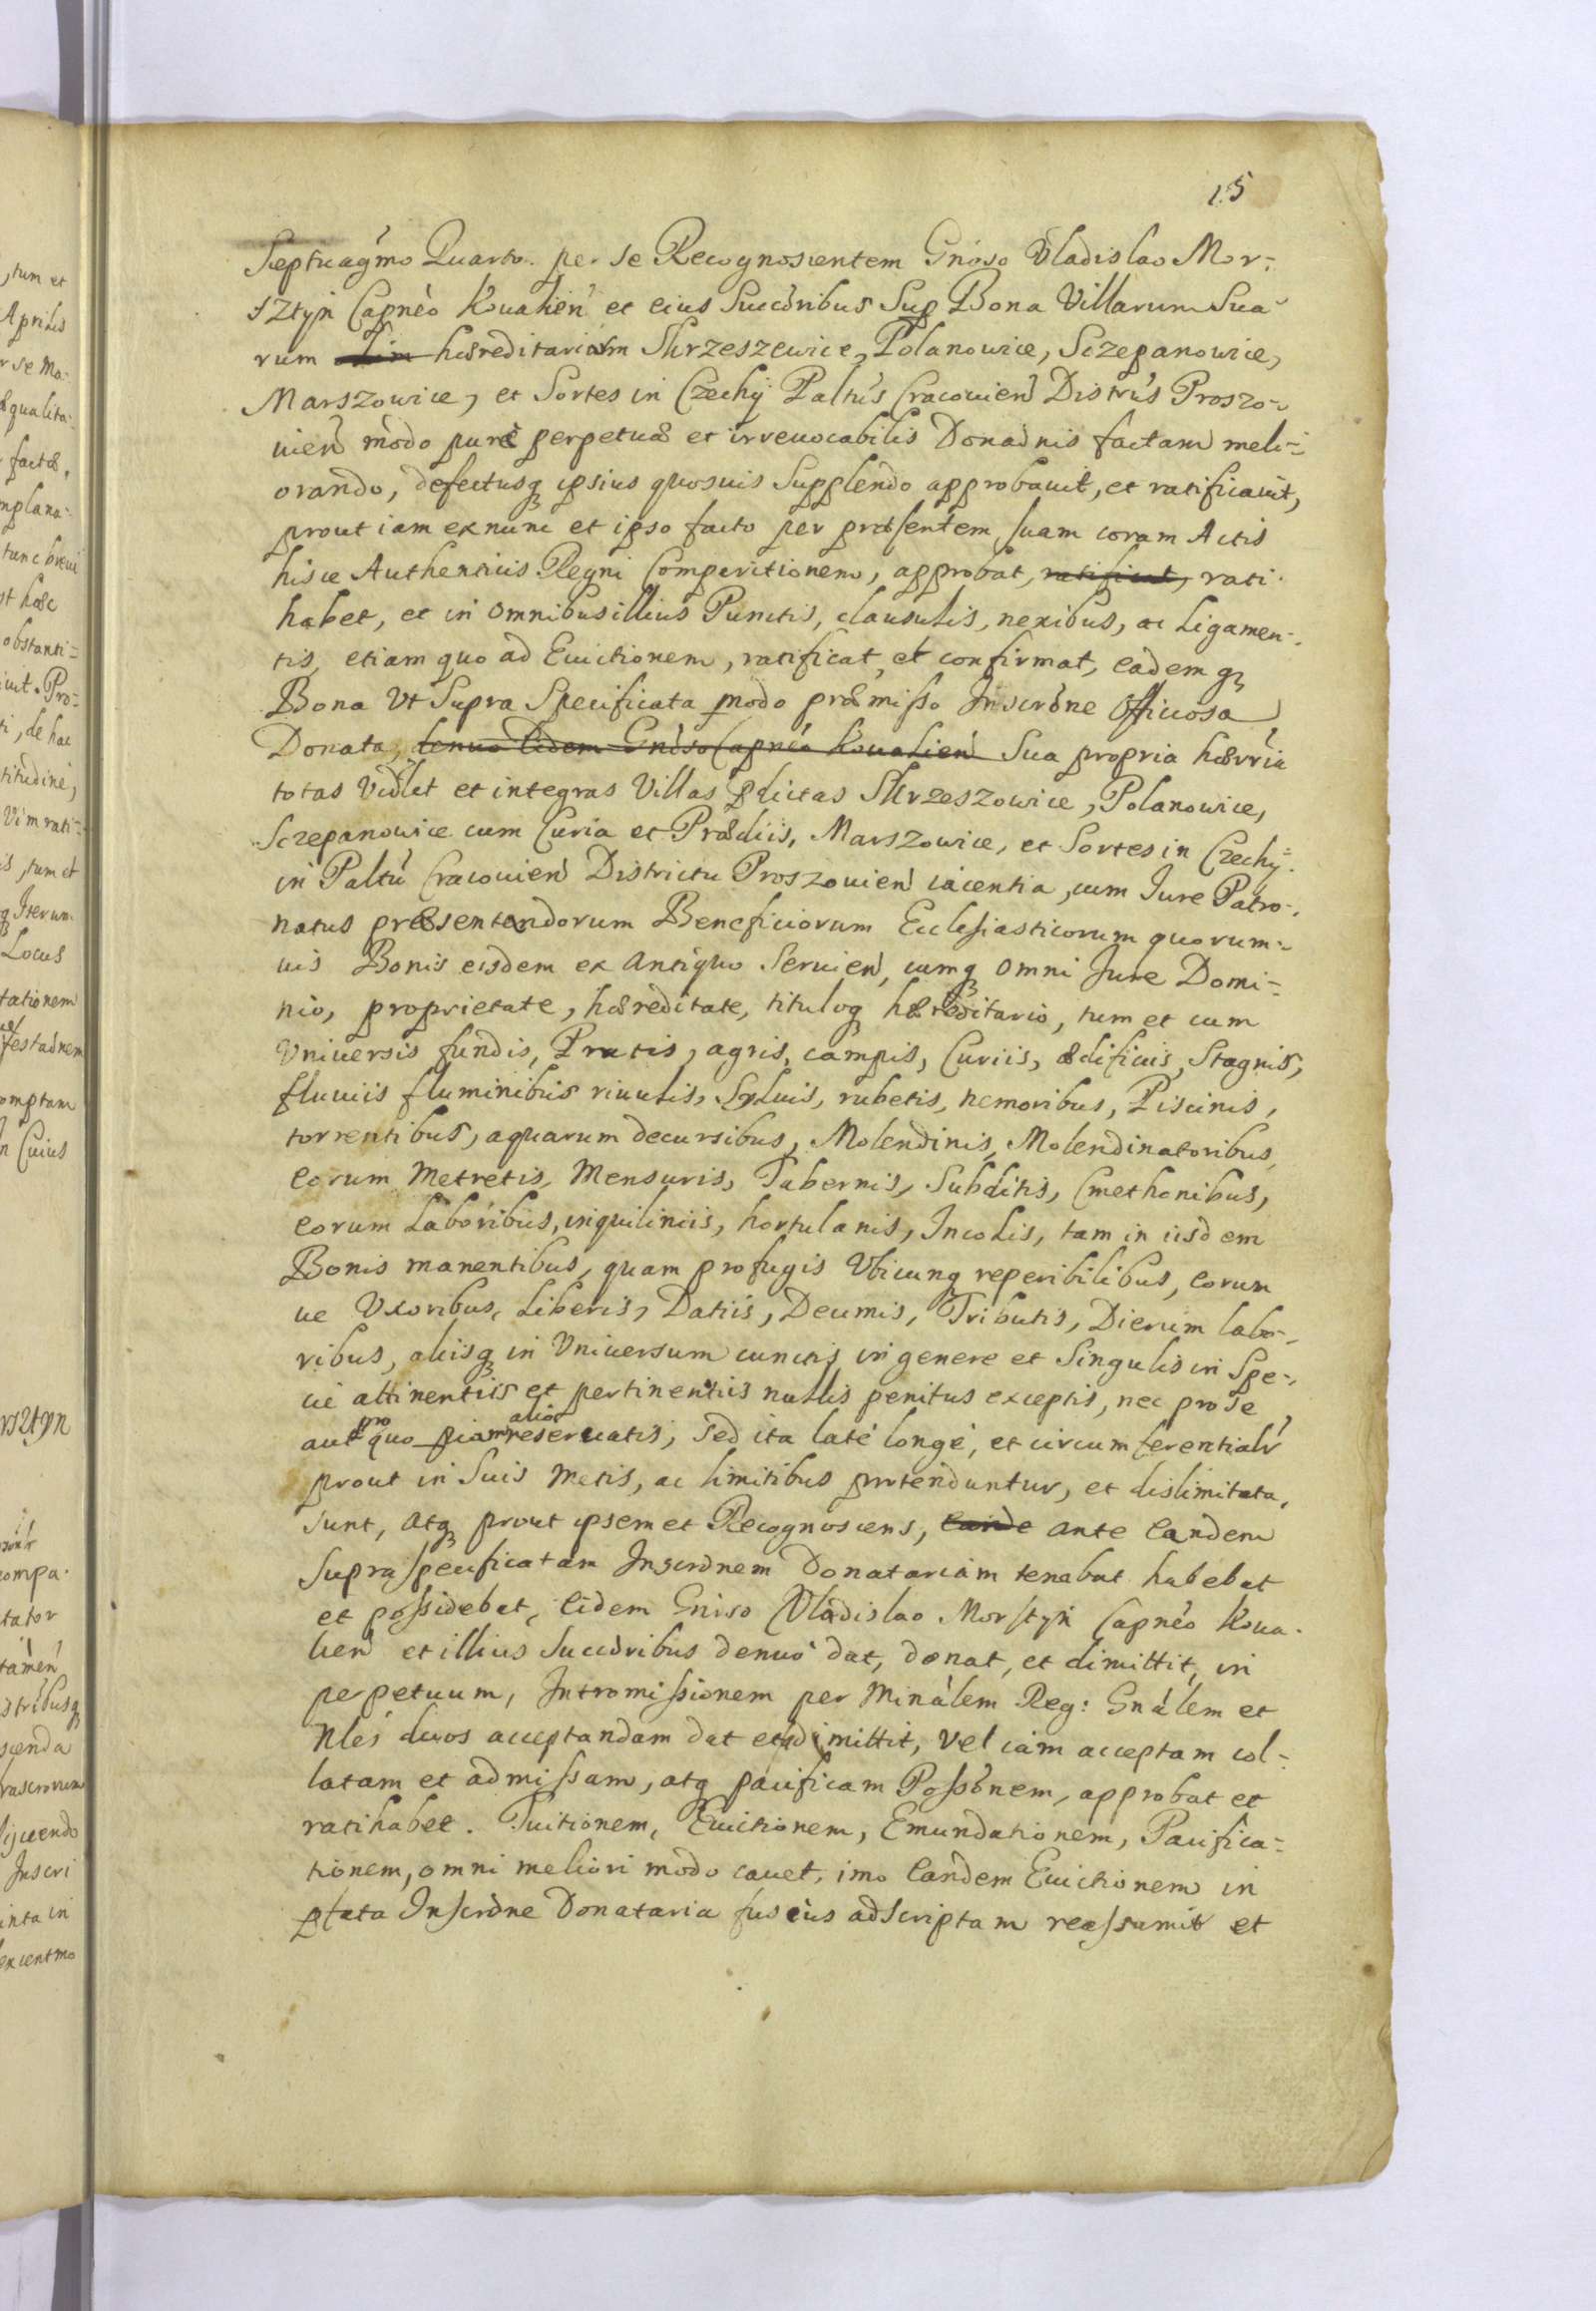 15
Septuagmo Quarto. per se Recognoscentem Gnoso Vladislao Mor-
sztyn Capneo Kovalien et eius Succoribus Sup Bona Villarum Sua
rum hæreditariam Skrzeszewice, Polanowice, Sczepanowice,
Marszowice, et Sortes in Czechÿ Paltus Cracouien Distrus Proszo-
uien modo puræ perpetuæ et irreuocabilis Donaonis factam meli-
orando, defectusq ipsius quosuis Supplendo approbauit, et ratificauit,
prout iam ex nunc et ipso facto per præsentem suam coram Actis
hisce Authenticis Regni Comparitionem, approbat, ratificat, rati
habet, et in omnibus illius Punctis, clausulis, nexibus, ac Ligamen-
tis, etiam quo ad Euictionem, ratificat et confirmat, eadem q
Bona Vt Supra Specificata modo præmisso Inscrone Officiosa
Donata, denuo Eidem Gnoso Capneo Kovalien Sua propria hærria
totas Videlt et integras Villas pdictas Skrzeszowice, Polanowice,
Sczepanowice cum Curia et Prædiis, Marszowice, et Sortes in Czechÿ
in Paltu Cracouien Districtu Proszouien iacentia, cum Iure Patro-
natus præsentandorum Beneficiorum Ecclesiasticorum quorum-
uis Bonis eisdem ex antiquo Seruien, cumq omni Jure Domi-
nio, proprietate, hæreditate, tituloq hæreditario, tum et cum
Vniuersis fundis, Pratis, agris, campis, Curiis, ædificiis, Stagnis,
fluuiis fluminibus riuulis, Syluis, rubetis, nemoribus, Piscinis,
torrentibus, aquarum decursibus, Molendinis, Molendinatoribus,
eorum Metretis, Mensuris, Tabernis, Subditis, Cmethonibus,
eorum Laboribus, inquiliniis, hortulanis, Incolis, tam in iisdem
Bonis manentibus, quam profugis Vbicunq reperibilibus, eorum
ue Vxoribus, Liberis, Datiis, Decimis, Tributis, Dierum labo-
ribus, aliisq in Vniuersum cunctis in genere et Singulis in Spe-
cie attinentiis et pertinentiis nullis penitus exceptis, nec pro se
aut pro quo piam alio reseruatis, sed ita laté longé, et circumferentialr
prout in Suis metis, ac limitibus protenduntur, et dislimitata,
sunt, atq prout ipsemet Recognoscens, eande ante Eandem
supra specificatam Inscronem Donatariam tenebat habebat
et possidebat, Eidem Gnoso Vladislao Morstyn Capneo Koua-
lien et illius Succoribus denuo dat, donat, et dimittit, in
perpetuum, Intromissionem per Minalem Reg: Gnalem et
Nles duos acceptandam dat et admittit, vel iam acceptam col-
latam et admissam, atq pacificam Possonem, approbat et
ratihabet. Tuitionem, Euictionem, Emundationem, Pacifica-
tionem, omni meliori modo cauet, imo Eandem Euictionem in
ptata Inscrone Donataria fusius adscriptam reassumit et